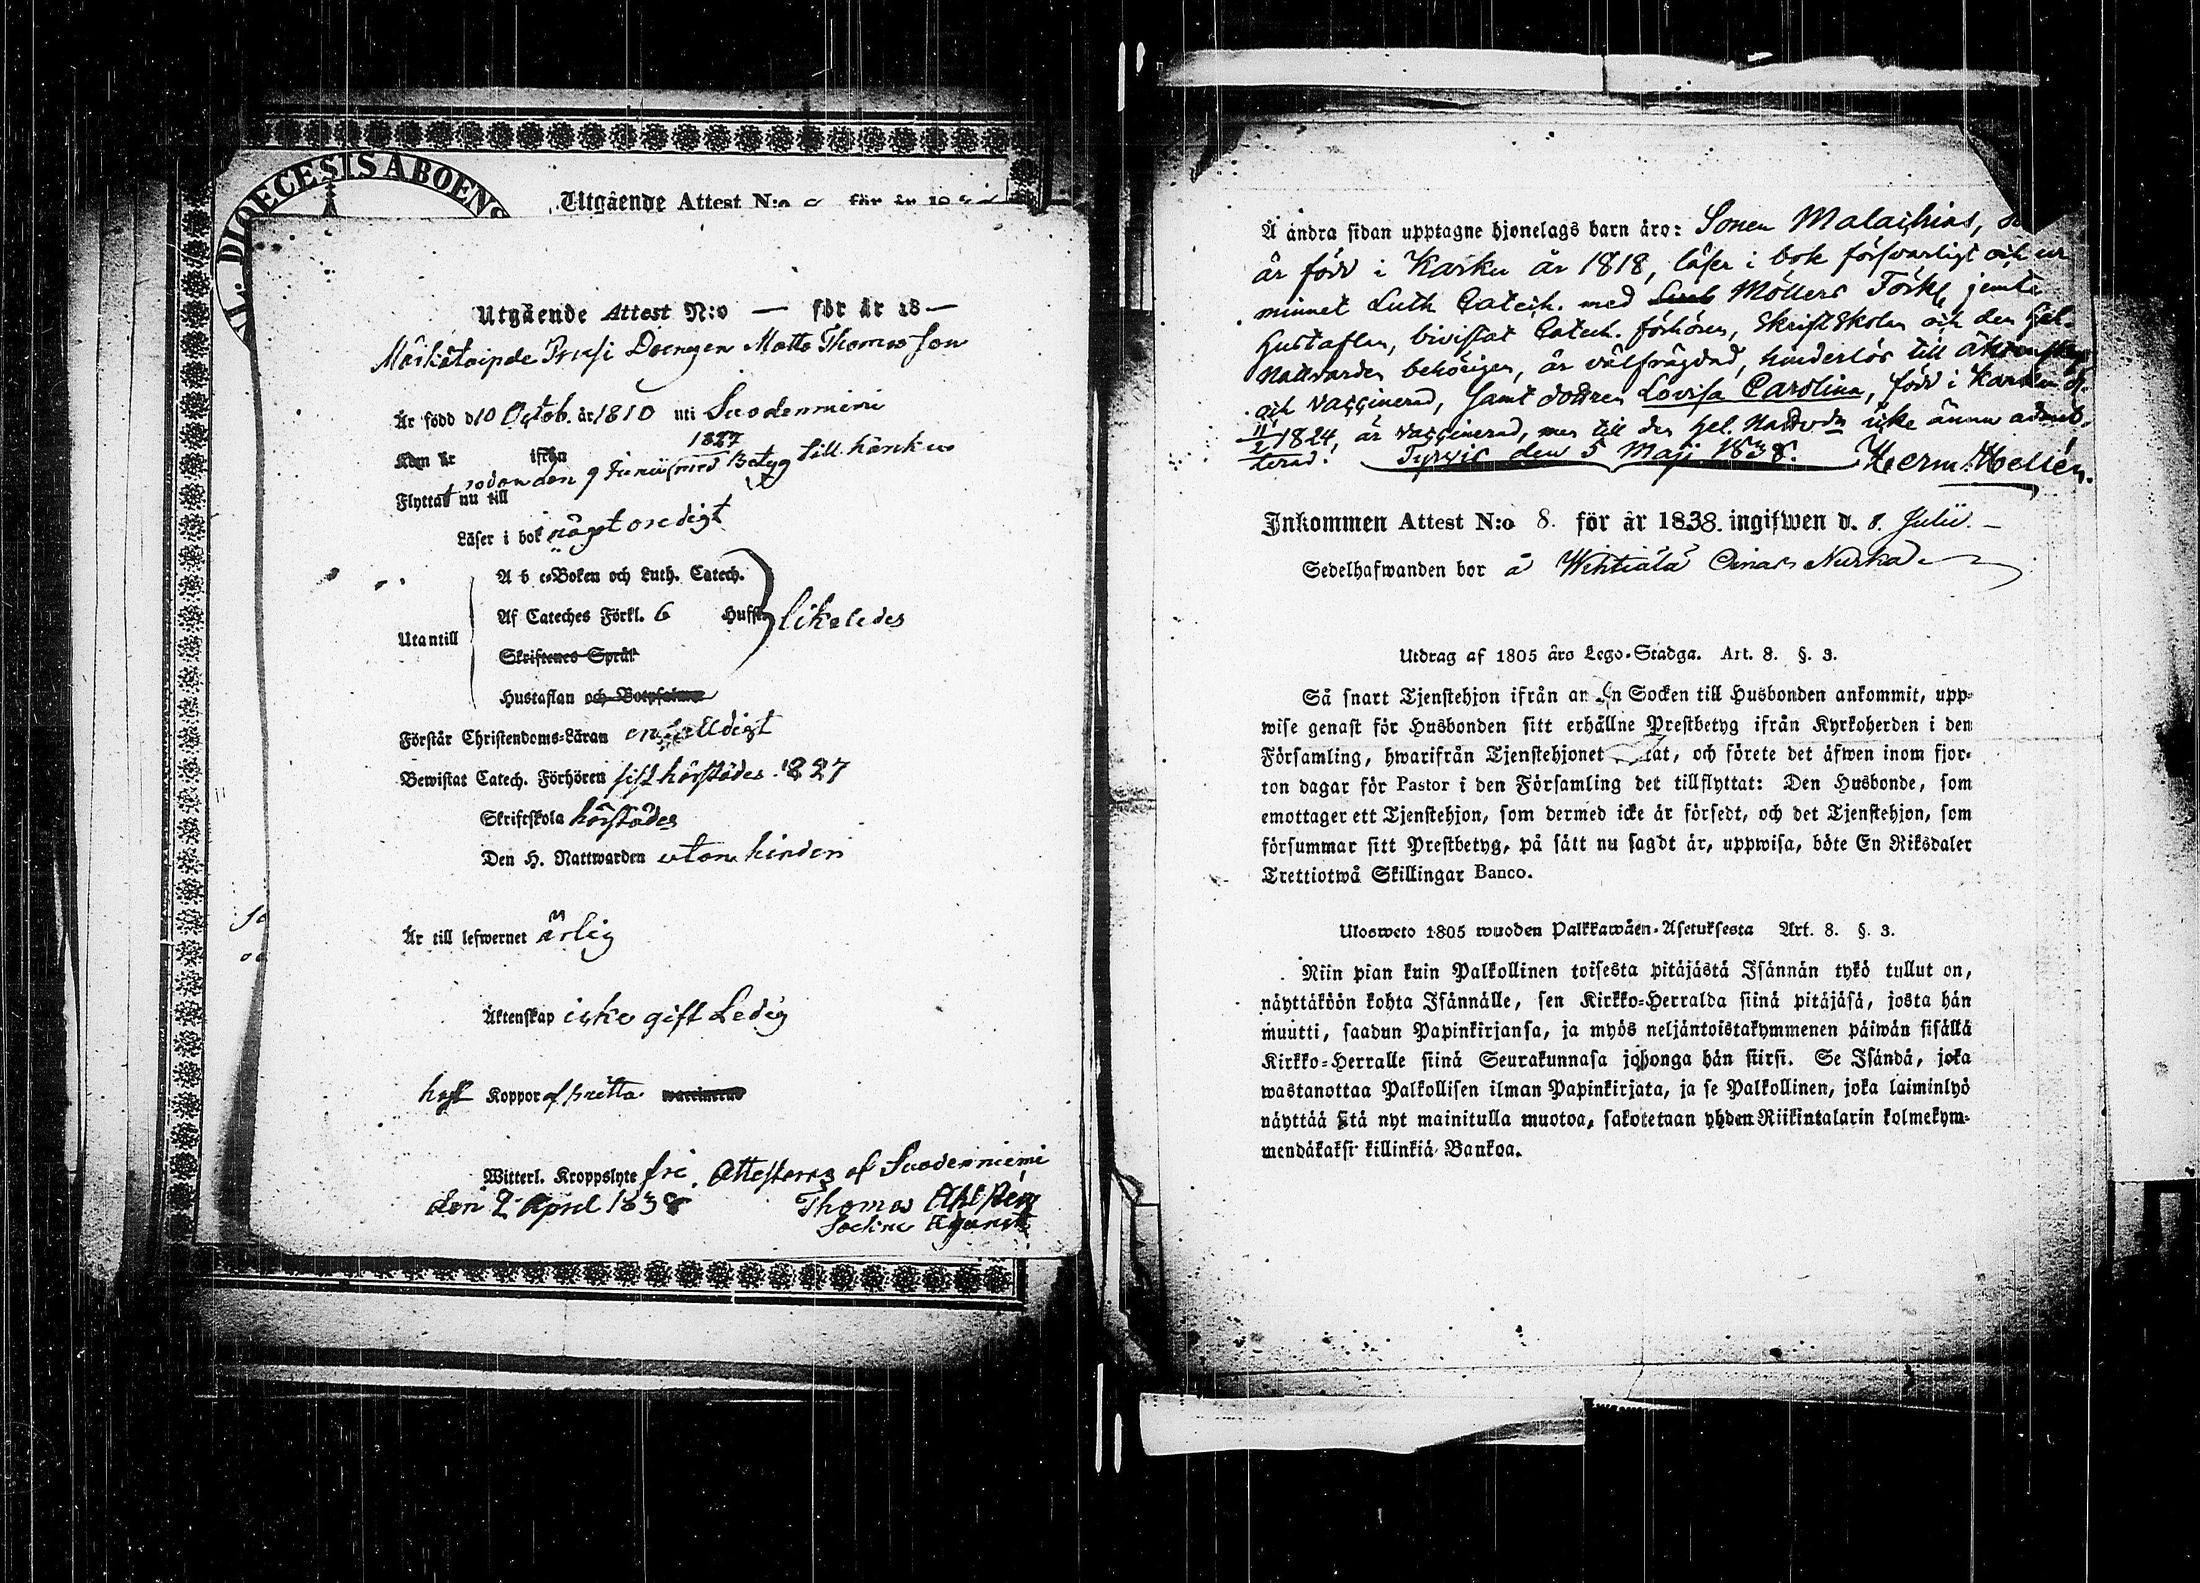 DIOECESIS ABOENS
Utgående Attest N:o för år
Utgående Attest N:o — för år 18—
Drengen Matts Thomasson
Är född d 10 Octob. år 1810 uti Suodenniemi
Kom år ifrån
1827
sedan den 9 Junii med Betyg till
Flyttat nu till
Läser i bok något oredigt
A b c-Boken och Luth. Catech.
Af Cateches Förkl. 6 Hufst. likaledes
Utantill
Skriftenes Språk
Hustaflan och Botpsalmer
Förstår Christendoms-Läran enfalldigt
Bewistat Catech. Förhören sist härstädes 1827
Skriftskola härstädes
Den H. Nattwarden utan hinder
Är till lefwernet ärlig
Äktenskap icke gift Ledig
haft Koppor
Witterl. Kroppslyte fri. Attesteras af Suodenniemi
den 2 April 1838 Thomas Ahlsten
Sockne Adjunct
Å andra sidan upptagne hjonelags barn äro: Sonen Malachias,
är född i Karku år 1818, läser i bok försvarligt och ur
minnet Luth Catech. med Möllers Förkl jemte
Hustaflan, bivistat Catech. förhören, Skriftskolan och den Hel.
Nattvarden behörigen, är välfrägdad, hinderlös till
och vaccinerad, samt dottren Lovisa Carolina, född i Karku d.
11/2 1824, är vaccinerad, men till den Hel. Nattvdn icke ännu admit-
terad. Tyrvis den 5 Maji 1838. Herm. Hellén.
Inkommen Attest N:o 8. för år 1838. ingifwen d. 8. Julii.—
Sedelhafwanden bor å Wihtiälä Oinas Nurka
Utdrag af 1805 års Lego-Stadga. Art. 8. §. 3.
Så snart Tjenstehjon ifrån an en Socken till Husbonden ankommit, upp-
wise genast för Husbonden sitt erhållne Prestbetyg ifrån Kyrkoherden i den
Församling, hwarifrån Tjenstehjonet tat, och förete det äfwen inom fjor-
ton dagar för Pastor i den Församling det tillflyttat: Den Husbonde, som
emottager ett Tjenstehjon, som dermed icke är försedt, och det Tjenstehjon, som
försummar sitt Prestbetyg, på sätt nu sagdt är, uppwisa, böte En Riksdaler
Trettiotwå Skillingar Banco.
Ulosweto 1805 wuoden Palkkawäen-Asetuksesta Art. 8. §. 3.
Niin pian kuin Palkollinen toisesta pitäjästä Isännän tykö tullut on,
näyttäköön kohta Isännälle, sen Kirkko-Herralda siinä pitäjäsä, josta hän
muutti, saadun Papinkirjansa, ja myös neljäntoistakymmenen päiwän sisällä
Kirkko-Herralle siinä Seurakunnasa johonga hän siirsi. Se Isändä, joka
wastanottaa Palkollisen ilman Papinkirjata, ja se Palkollinen, joka laiminlyö
näyttää sitä nyt mainitulla muotoa, sakotetaan yhden Riikintalarin kolmekym-
mendäkaksi killinkiä Bankoa.